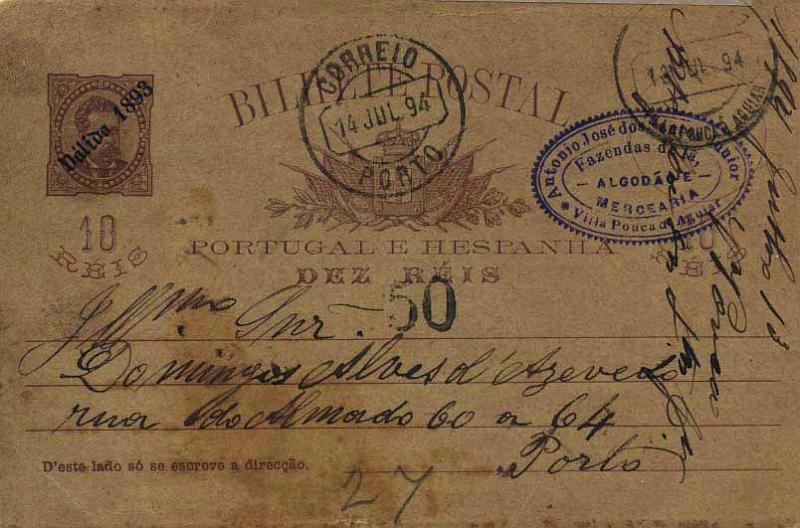 CORREIO
14 JUL. 94
PORTO
13 JUL. 94
VILLA POUCA D'AGUIAR
BILHETE POSTAL
Valido 1893
Antonio José dos Junior
Fazendas de lã,
ALGODÃO E
MERCEARIA
* Villa Pouca d'Aguiar
10
RÉIS
10
RÉIS
PORTUGAL E HESPANHA
DEZ RÉIS
50
Illmo Snr.
Domingos Alves d'Azevedo
rua do Almada 60 a 64
Porto
D'este lado só se escreve a direcção.
27